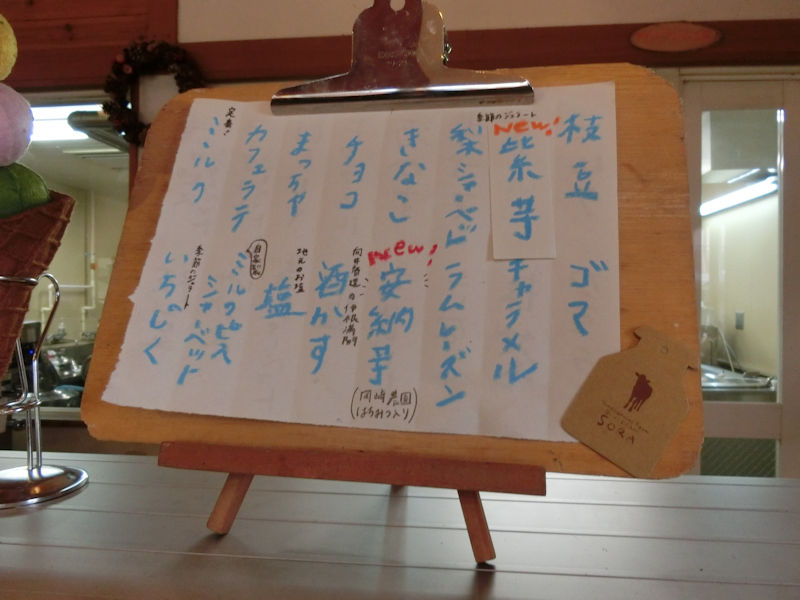 枝豆
New!
紫芋
季節のジェラート
梨シャーベット
きなこ
チョコ
まっチャ
カフェラテ
定番!
ミルク
ゴマ
キャラメル
ラムレーズン
New!
安納芋
(岡崎農園
はちみつ入り)
向井酒造の伊根満開
酒かす
地元のお塩
塩
自家製
ミルクピス
シャーベット
季節のジェラート
いちじく
SORA